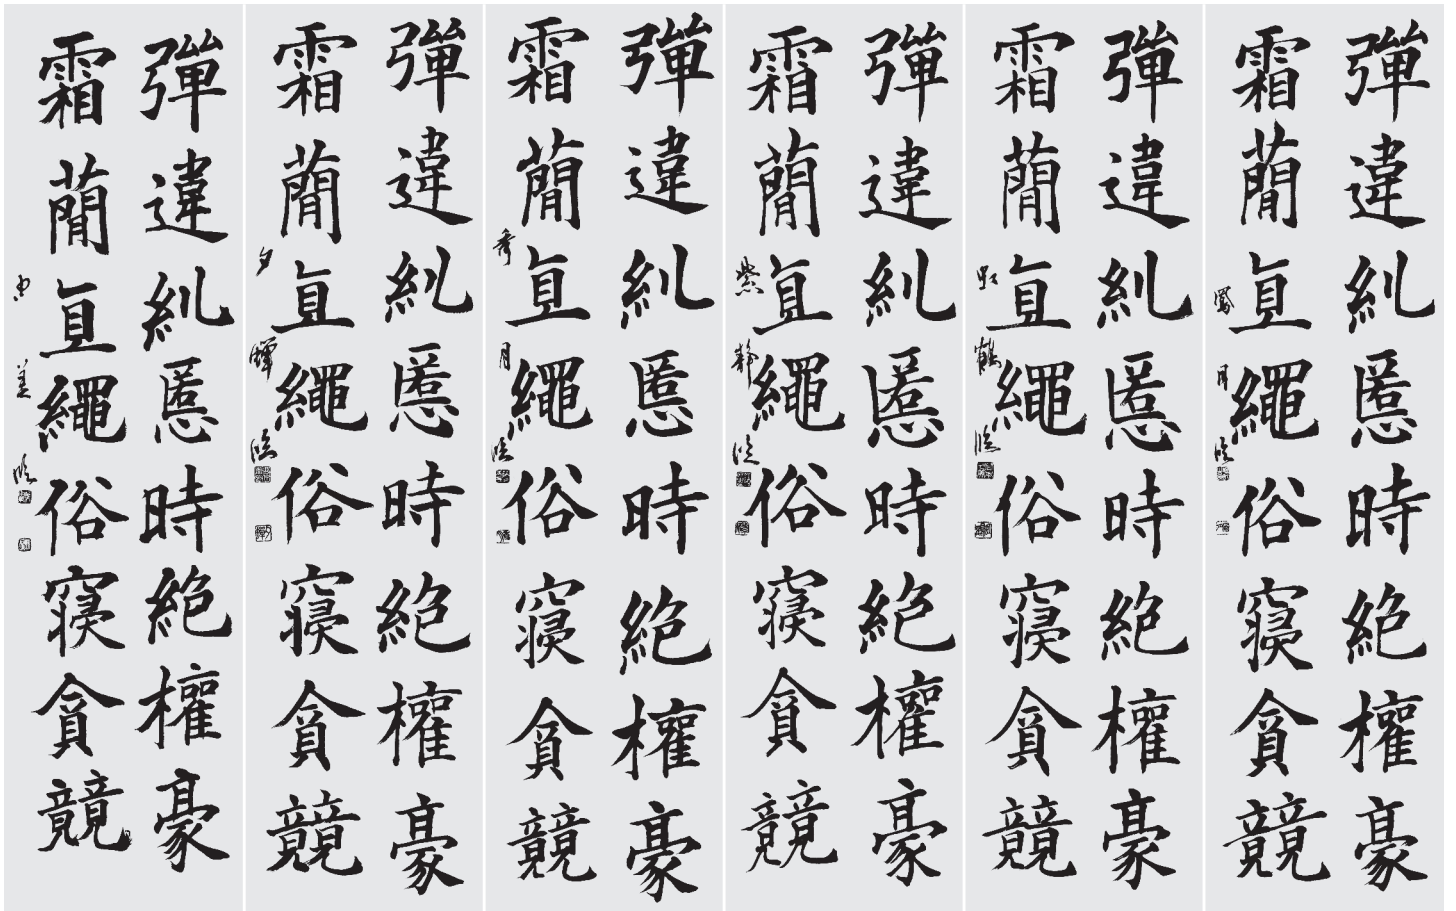 彈違糾慝時絕權豪
霜蕳直繩俗寢貪競
鳳月臨
彈違糾慝時絕權豪
霜蕳直繩俗寢貪競
鶴臨
彈違糾慝時絕權豪
霜蕳直繩俗寢貪競
紫靜臨
彈違糾慝時絕權豪
霜蕳直繩俗寢貪競
秀月臨
彈違糾慝時絕權豪
霜蕳直繩俗寢貪競
夕臨
彈違糾慝時絕權豪
霜蕳直繩俗寢貪競
美臨